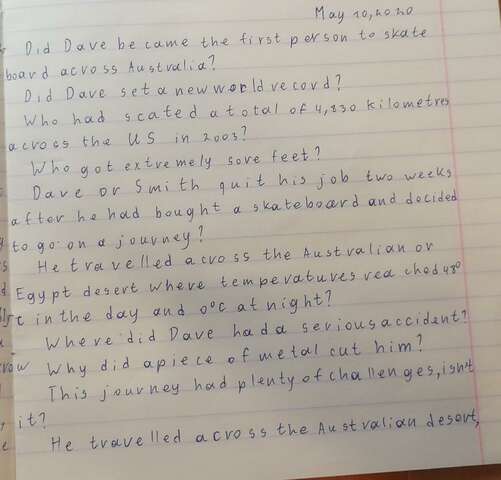 May 10, 2020
Did Dave be came the first person to skate
board across Australia?
Did Dave set a new world record?
Who had scated a total of 4,830 kilometres
across the US in 2003?
Who got extremely sore feet?
Dave or Smith quit his job two weeks
after he had bought a skateboard and decided
to go on a journey?
He travelled across the Australian or
Egypt desert where temperatures rea ched 48°
c in the day and 0°c at night?
Where did Dave had a serious accident?
Why did a piece of metal cut him?
This journey had plenty of challenges, isn't
it?
He travelled across the Australian desert,